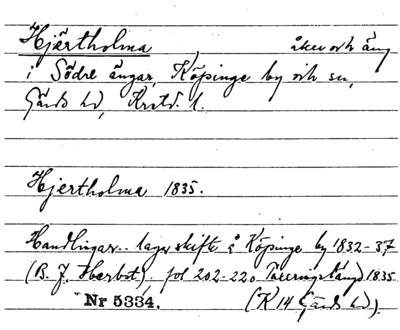 Hjärtholma, åker och äng
i Södre ängar, Köpinge by och sn,
Gärds hd, Krstd. l.
Hjertholma 1835.
Handlingar.. laga skifte å Köpinge by 1832-37
(B. J. Herbst), fol 202-220 Taxeringslängd 1835
Nr 5334. (K 14 Gärds hd).